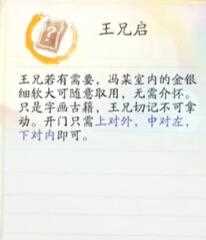 王兄启
王兄若有需要，冯某室内的金银
细软大可随意取用，无需介怀。
只是字画古籍，王兄切记不可拿
动。开门只需上对外，中对左，
下对内即可。